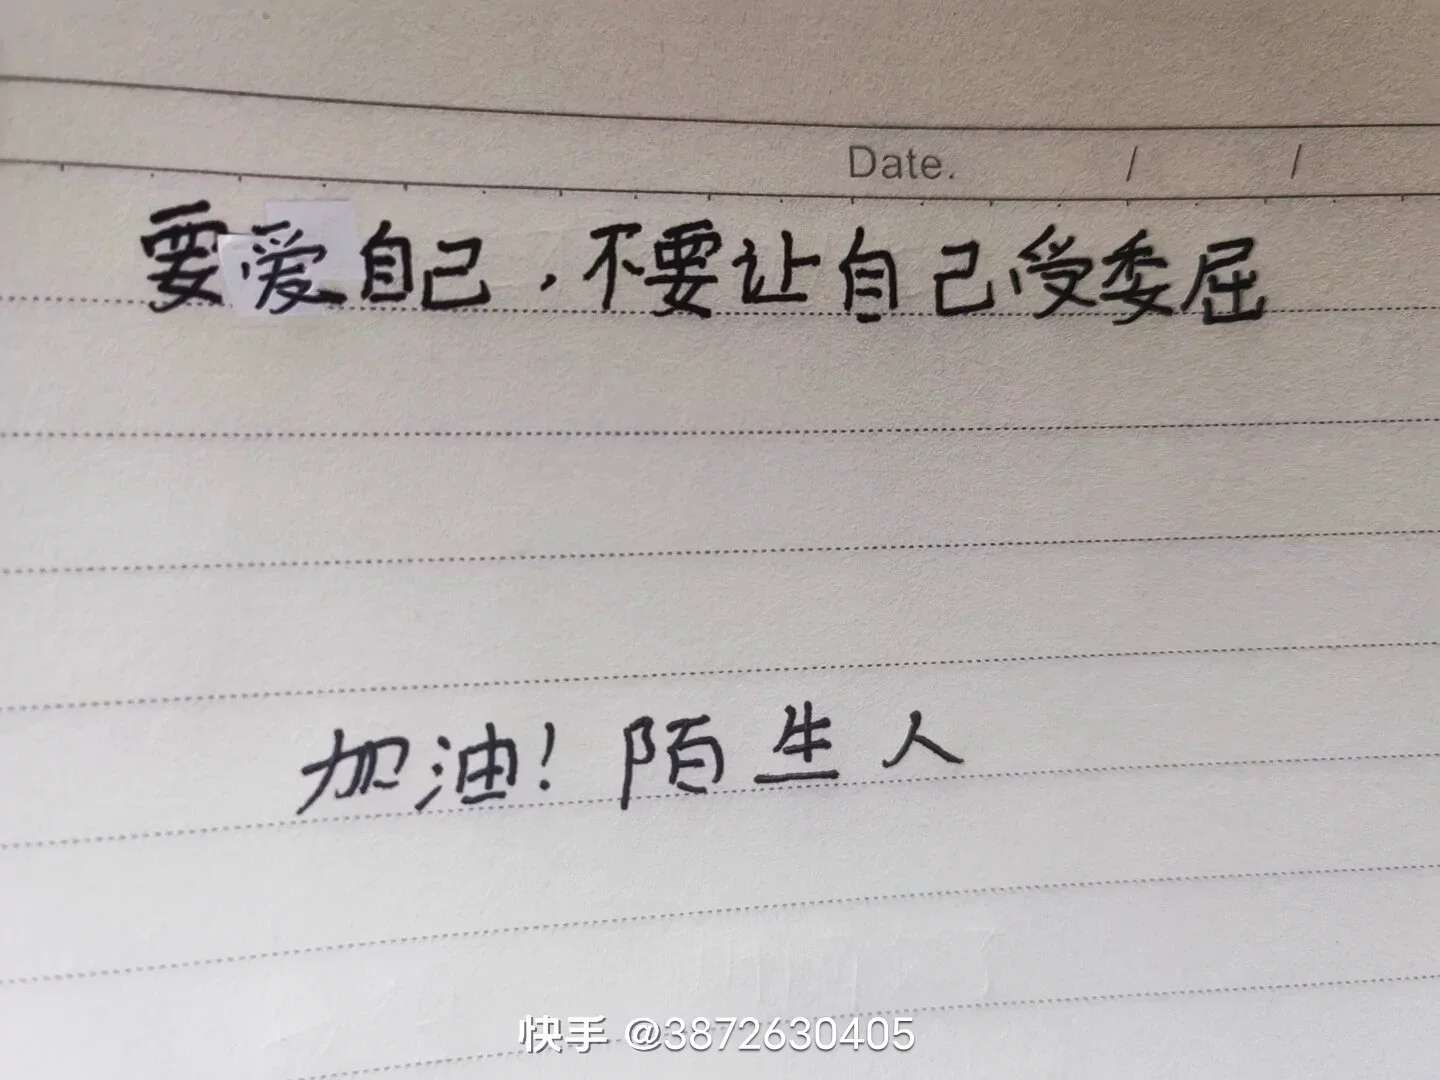 Date. / /
要爱自己，不要让自己受委屈
加油！陌生人
快手 @3872630405